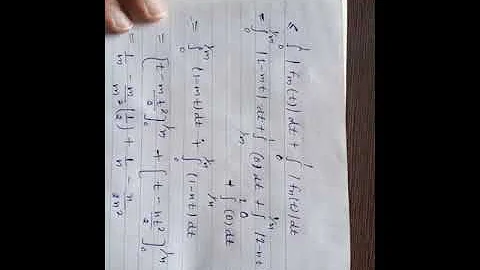 ≤ ∫₀¹ |fm(t)| dt + ∫₀¹ |fn(t)| dt
= ∫₀^{1/m} |1-mt| dt + ∫_{1/m}^1 (0) dt + ∫₀^{1/n} |1-nt
+ ∫_{1/n}^1 (0) dt
= ∫₀^{1/m} (1-mt) dt + ∫₀^{1/n} (1-nt) dt
= [t - mt²/2]₀^{1/m} + [t - nt²/2]₀^{1/n}
1/m - m/2 (1/m²) + 1/n - n/2n²